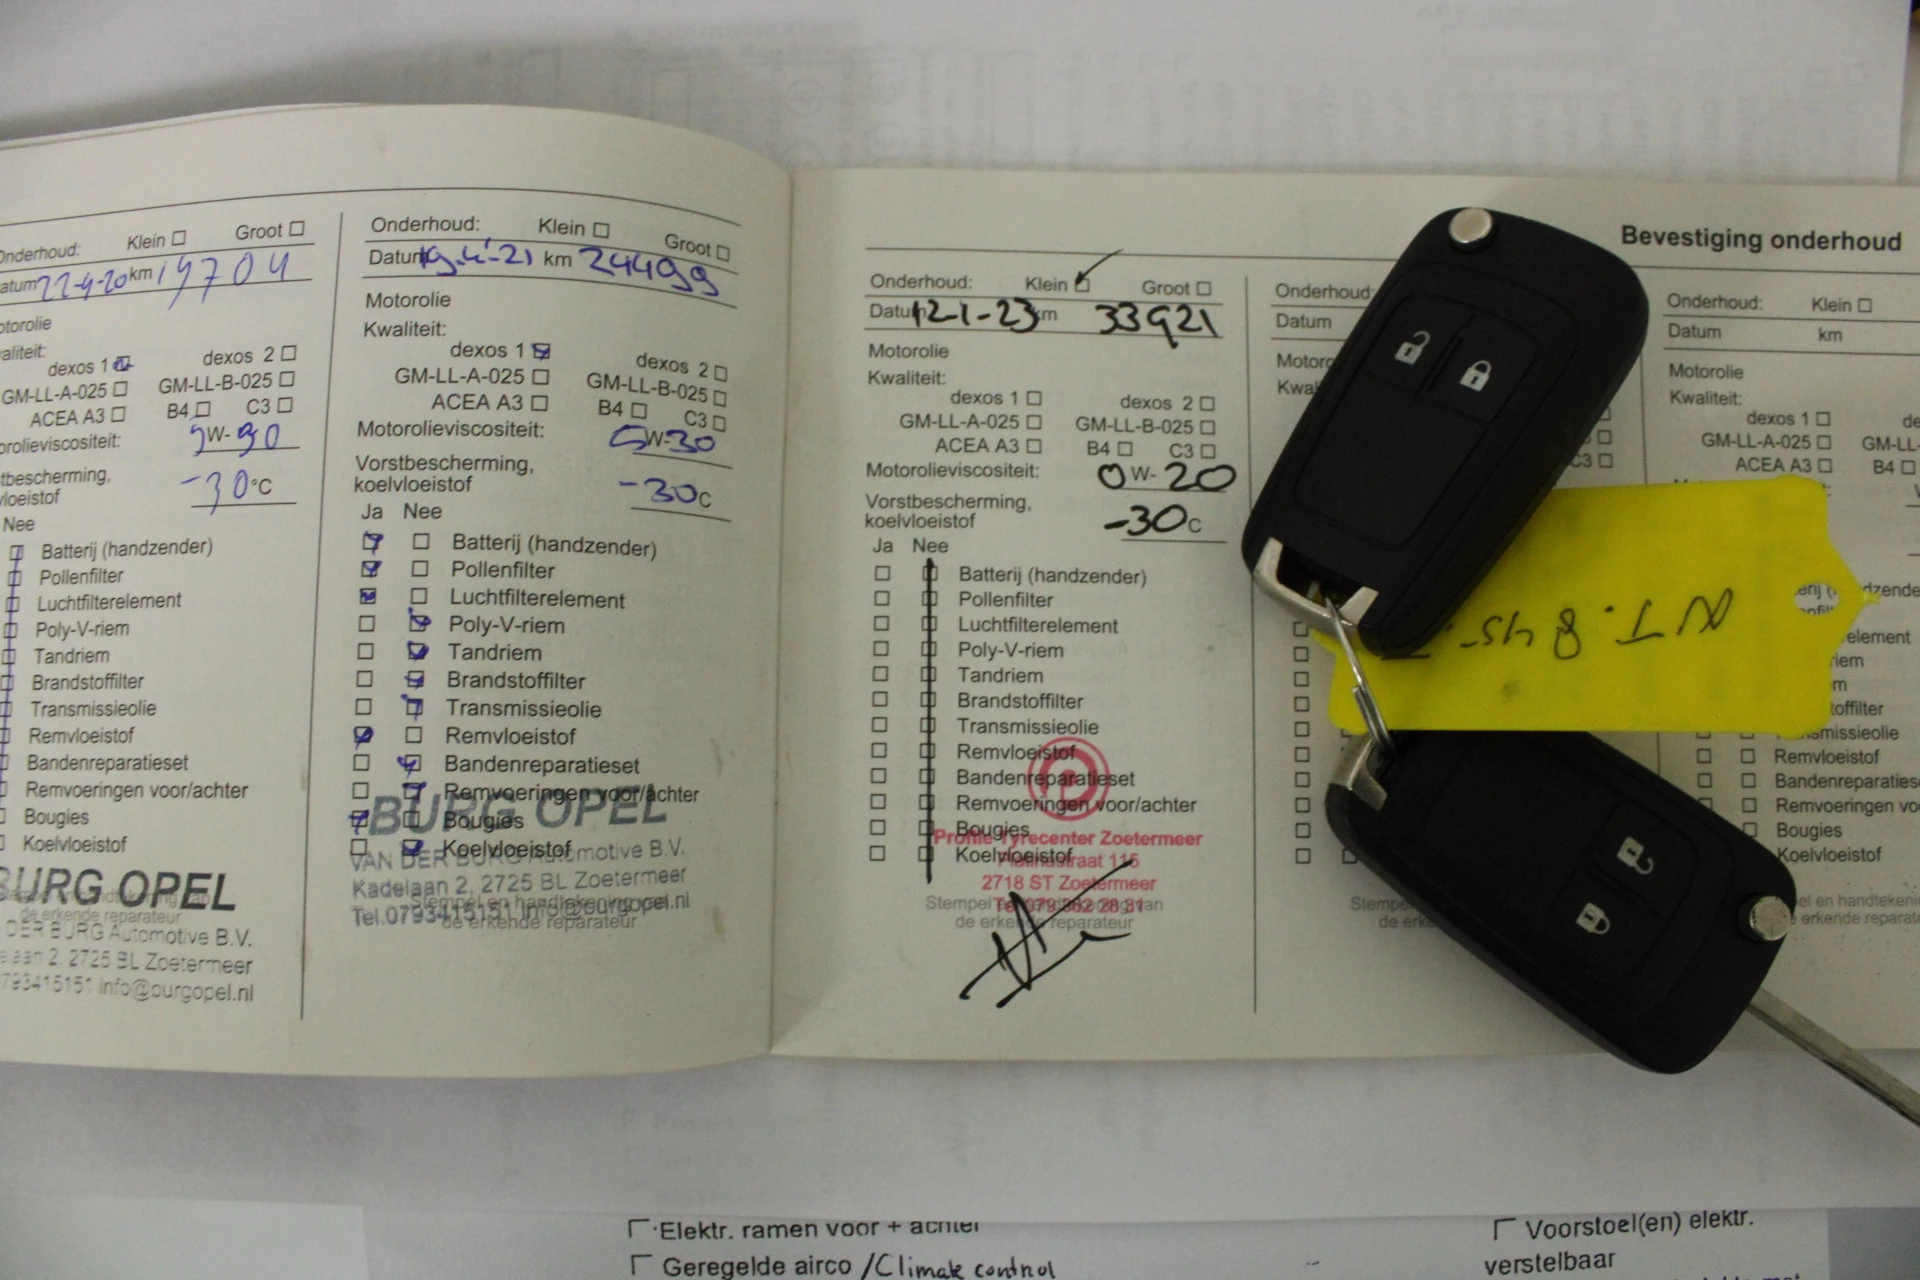 Onderhoud: Klein Groot
Datum 22-4-20 km 19704
Motorolie
Kwaliteit:
dexos 1 dexos 2
GM-LL-A-025 GM-LL-B-025
ACEA A3 B4 C3
W-
-30°C
Nee
Batterij (handzender)
Pollenfilter
Luchtfilterelement
Poly-V-riem
Tandriem
Brandstoffilter
Transmissieolie
Remvloeistof
Bandenreparatieset
Remvoeringen voor/achter
Bougies
Koelvloeistof
BURG OPEL
de erkende reparateur
DER BURG Automotive B.V.
2, 2725 BL Zoetermeer
793415151 info@burgopel.nl
Onderhoud: Klein Groot
Datum 19-4-21 km 24499
Motorolie
Kwaliteit:
dexos 1 dexos 2
GM-LL-A-025 GM-LL-B-025
ACEA A3 B4 C3
Motorolieviscositeit: 5W-30
Vorstbescherming,
koelvloeistof -30C
Ja Nee
Batterij (handzender)
Pollenfilter
Luchtfilterelement
Poly-V-riem
Tandriem
Brandstoffilter
Transmissieolie
Remvloeistof
Bandenreparatieset
Remvoeringen voor/achter
Bougies
Koelvloeistof
BURG OPEL
VAN DER BURG Automotive B.V.
Kadelaan 2, 2725 BL Zoetermeer
Tel.0793415151 info@burgopel.nl
Stempel en handtekening van
de erkende reparateur
Onderhoud: Klein Groot
Datum 12-1-23 km 33921
Motorolie
Kwaliteit:
dexos 1 dexos 2
GM-LL-A-025 GM-LL-B-025
ACEA A3 B4 C3
Motorolieviscositeit: 0W-20
Vorstbescherming,
koelvloeistof -30C
Ja Nee
Batterij (handzender)
Pollenfilter
Luchtfilterelement
Poly-V-riem
Tandriem
Brandstoffilter
Transmissieolie
Remvloeistof
Bandenreparatieset
Remvoeringen voor/achter
Bougies
Koelvloeistof
Profile Tyrecenter Zoetermeer
Platinastraat 115
2718 ST Zoetermeer
Tel 079 362 28 31
Stempel van
de erkende reparateur
Bevestiging onderhoud
Onderhoud:
Datum
C3
Onderhoud: Klein
Datum km
Motorolie
Kwaliteit:
dexos 1
GM-LL-A-025 GM-LL-
ACEA A3 B4
Remvloeistof
Bandenreparatieset
Remvoeringen
Bougies
Koelvloeistof
erkende
Elektr. ramen voor + achter
Geregelde airco /Climate control
Voorstoel(en) elektr.
verstelbaar